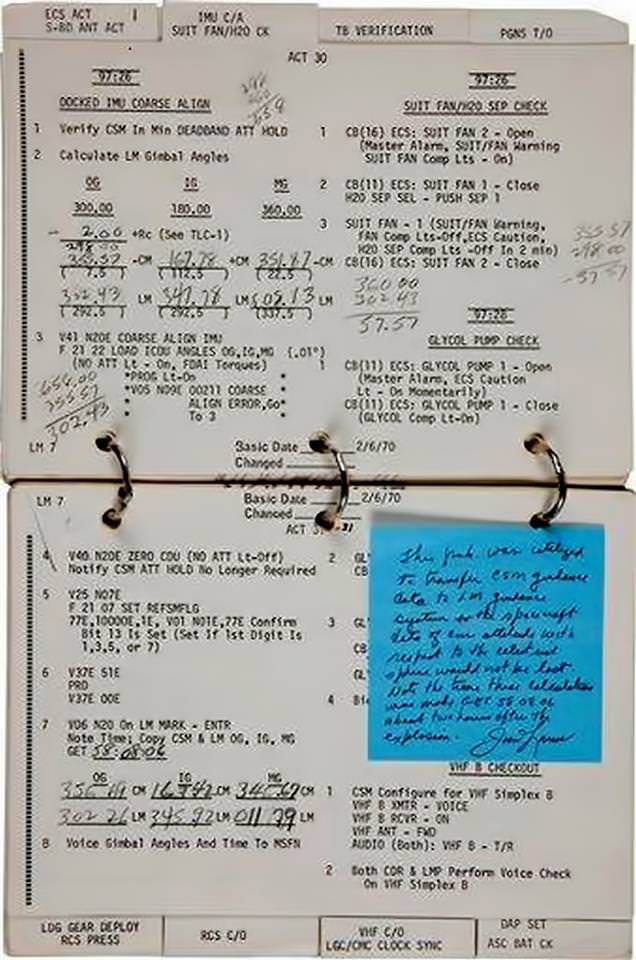 ECS ACT
S-BD ANT ACT
IMU C/A
SUIT FAN/H2O CK
TB VERIFICATION
PGNS T/O
ACT 30
97:26
DOCKED IMU COARSE ALIGN
1 Verify CSM In Min DEADBAND ATT HOLD
2 Calculate LM Gimbal Angles
OG IG MG
300.00 180.00 360.00
- 2.00 +Rc (See TLC-1)
298.00
355.57 -CM 167.78 +CM 351.87 -CM
(7.5) (112.5) (22.5)
302.43 LM 347.78 LM 008.13 LM
(292.5) (292.5) (337.5)
3 V41 N20E COARSE ALIGN IMU
F 21 22 LOAD ICDU ANGLES OG,IG,MG (.01°)
(NO ATT Lt - On, FDAI Torques)
*PROG Lt-On *
*V05 N09E 00211 COARSE *
* ALIGN ERROR,Go*
* To 3 *
658.00
355.57
302.43
LM 7
Basic Date 2/6/70
Changed
97:26
SUIT FAN/H2O SEP CHECK
1 CB(16) ECS: SUIT FAN 2 - Open
(Master Alarm, SUIT/FAN Warning
SUIT FAN Comp Lts - On)
2 CB(11) ECS: SUIT FAN 1 - Close
H2O SEP SEL - PUSH SEP 1
3 SUIT FAN - 1 (SUIT/FAN Warning,
FAN Comp Lts-Off,ECS Caution,
H2O SEP Comp Lts -Off In 2 min)
CB(16) ECS: SUIT FAN 2 - Close
355.57
298.00
-57.57
360.00
302.43
57.57
97:26
GLYCOL PUMP CHECK
1 CB(11) ECS: GLYCOL PUMP 1 - Open
(Master Alarm, ECS Caution
Lt - On Momentarily)
CB(11) ECS: GLYCOL PUMP 1 - Close
(GLYCOL Comp Lt-On)
LM 7
Basic Date 2/6/70
Changed
ACT 31
4 V40 N20E ZERO CDU (NO ATT Lt-Off)
Notify CSM ATT HOLD No Longer Required
5 V25 N07E
F 21 07 SET REFSMFLG
77E,10000E,1E, V01 N01E,77E Confirm
Bit 13 Is Set (Set If 1st Digit Is
1,3,5, or 7)
6 V37E 51E
PRO
V37E 00E
7 V06 N20 On LM MARK - ENTR
Note Time; Copy CSM & LM OG, IG, MG
GET 58:08:06
OG IG MG
CM CM CM
302 26 LM 345.92 LM 011.79 LM
8 Voice Gimbal Angles And Time To MSFN
2 GL
CB
3 GL
CB
GL
4 Bi
This was utilized
to transfer CSM guidance
data to LM guidance
system so the spacecraft
data of our attitude with
respect to the celestrial
sphere would not be lost.
Note the time these calculations
was made GET 58 08 06
about two hours after the
explosion.
VHF B CHECKOUT
1 CSM Configure for VHF Simplex B
VHF B XMTR - VOICE
VHF B RCVR - ON
VHF ANT - FWD
AUDIO (Both): VHF B - T/R
2 Both CDR & LMP Perform Voice Check
On VHF Simplex B
LDG GEAR DEPLOY
RCS PRESS
RCS C/O
VHF C/O
LGC/CMC CLOCK SYNC
DAP SET
ASC BAT CK